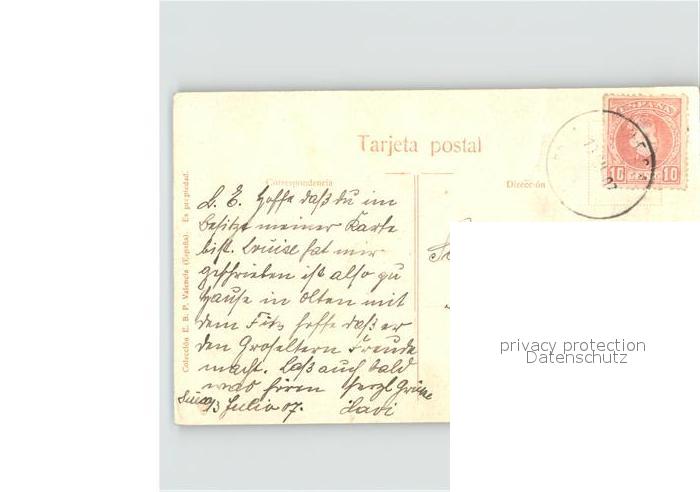 Tarjeta postal
Correspondencia
Dirección
Colección E. B. P. Valencia (España). Es propiedad.
ESPAÑA
10 10
L. E. Hoffe daß du im
besitze meiner Karte
bist. Louise hat mir
geschrieben ist also zu
Hause in Olten mit
dem Fitz hoffe daß er
den Großeltern Freude
macht. Laß auch bald
was hören Herzl Grüße
13 Julio 07.
privacy protection
Datenschutz